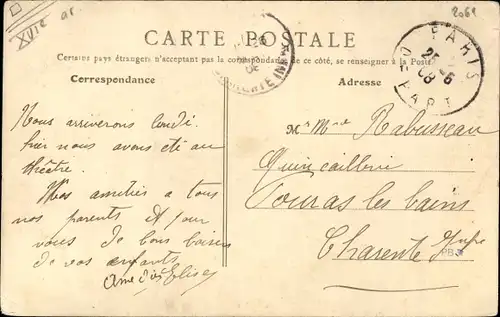 XVIe ar.
2061
CARTE POSTALE
Certains pays étrangers n'acceptant pas la correspondance de ce côté, se renseigner à la Poste
Correspondance
Adresse
PARIS
DEPART
Nous arriverons lundi
hier nous avons été au
théâtre.
Mes amitiés a tous
nos parents et pour
vous de bons baisers
de vos enfants
Mr Mme Rabusseau
Quincaillerie
Fouras les bains
Charente Infre
PB